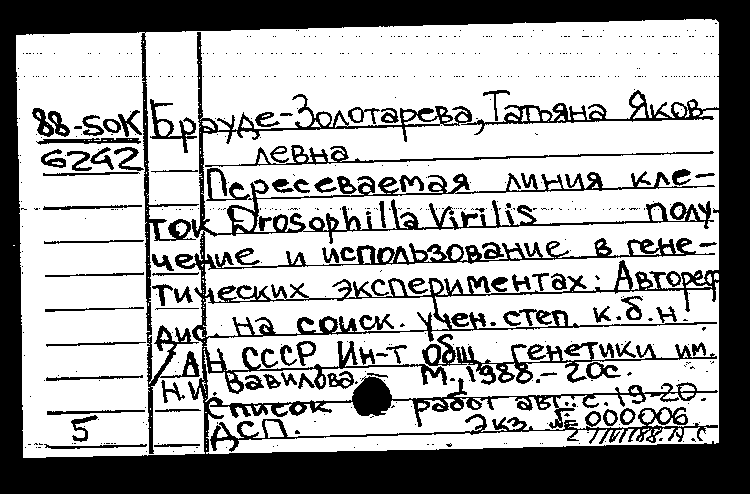 88-SOK
6242
Брауде-Золотарева, Татьяна Яков-
левна.
Пересеваемая линия кле-
ток Drosophilla Virilis полу-
чение и использование в гене-
тических экспериментах: Автореф
дис. на соиск. учен. степ. к.б.н.
/ АН СССР, Ин-т общ. генетики им.
Н.И. Вавилова. М., 1988. - 20с.
Список работ авт.: с. 19-20.
ДСП. Экз. № 000006.
5